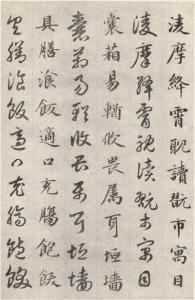 淩摩絳霄耽讀翫市寓目
淩摩絳霄耽讀翫市寓目
囊箱易輶攸畏屬耳垣墻
囊箱易輶攸畏屬耳垣墻
具膳湌飯適口充膓飽飫
具膳湌飯適口充膓飽飫